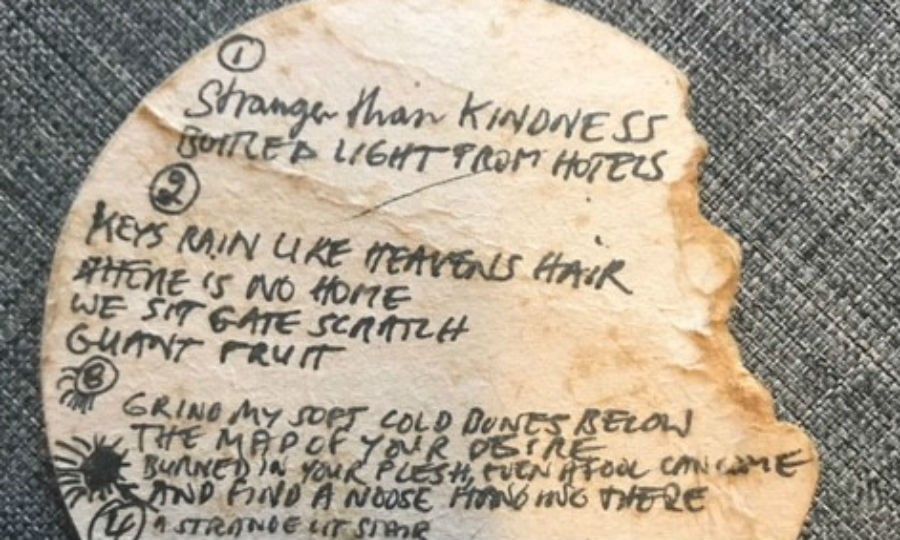 1
Stranger than KINDNESS
BOTTLED LIGHT FROM HOTELS
2
KEYS RAIN LIKE HEAVENS HAIR
THERE IS NO HOME
WE SIT GATE SCRATCH
GUANT FRUIT
3
GRIND MY SOFT COLD BONES BELOW
THE MAP OF YOUR DESIRE
BURNED IN YOUR FLESH, EVEN A FOOL CAN COME
AND FIND A NOOSE HANGING THERE
4
A STRANGE LIT STAIR